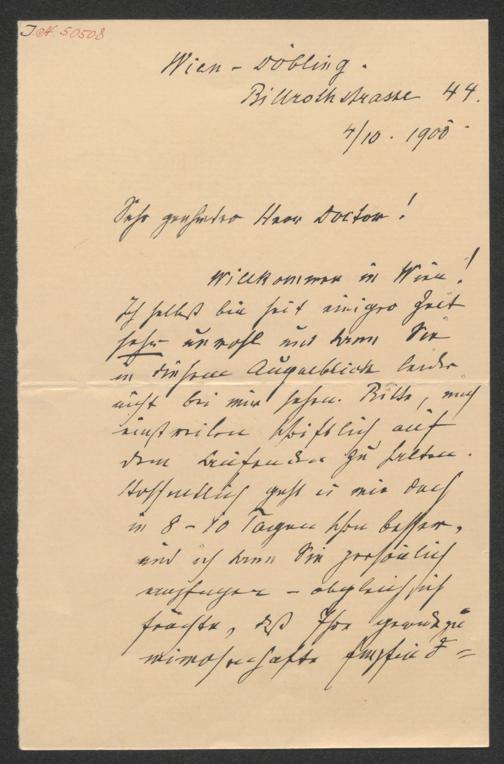 I.N. 50508
Wien – Döbling.
Billrothstrasse 44.
4/10. 1900.
Sehr geehrter Herr Doctor!
Willkommen in Wien!
Ich selbst bin seit einiger Zeit
sehr unwohl und kann Sie
in diesem Augenblick leider
nicht bei mir sehen. Bitte, mich
einstweilen schriftlich auf
dem Laufenden zu halten.
Hoffentlich geht es mir doch
in 8–10 Tagen schon besser,
und ich kann Sie persönlich
empfangen – obgleich ich
fürchte, daß Ihre geradezu
mimosenhafte Empfind=